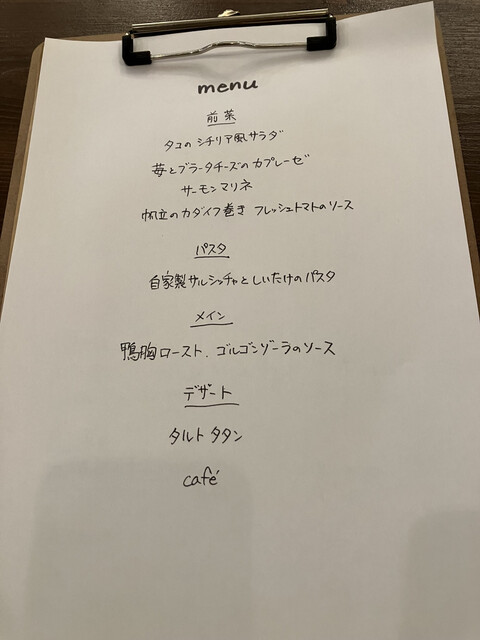 menu
前菜
タコの シチリア風サラダ
苺とブラータチーズのカプレーゼ
サーモンマリネ
帆立のカダイフ巻き フレッシュトマトのソース
パスタ
自家製サルシッチャとしいたけのパスタ
メイン
鴨胸ロースト、ゴルゴンゾーラのソース
デザート
タルト タタン
café